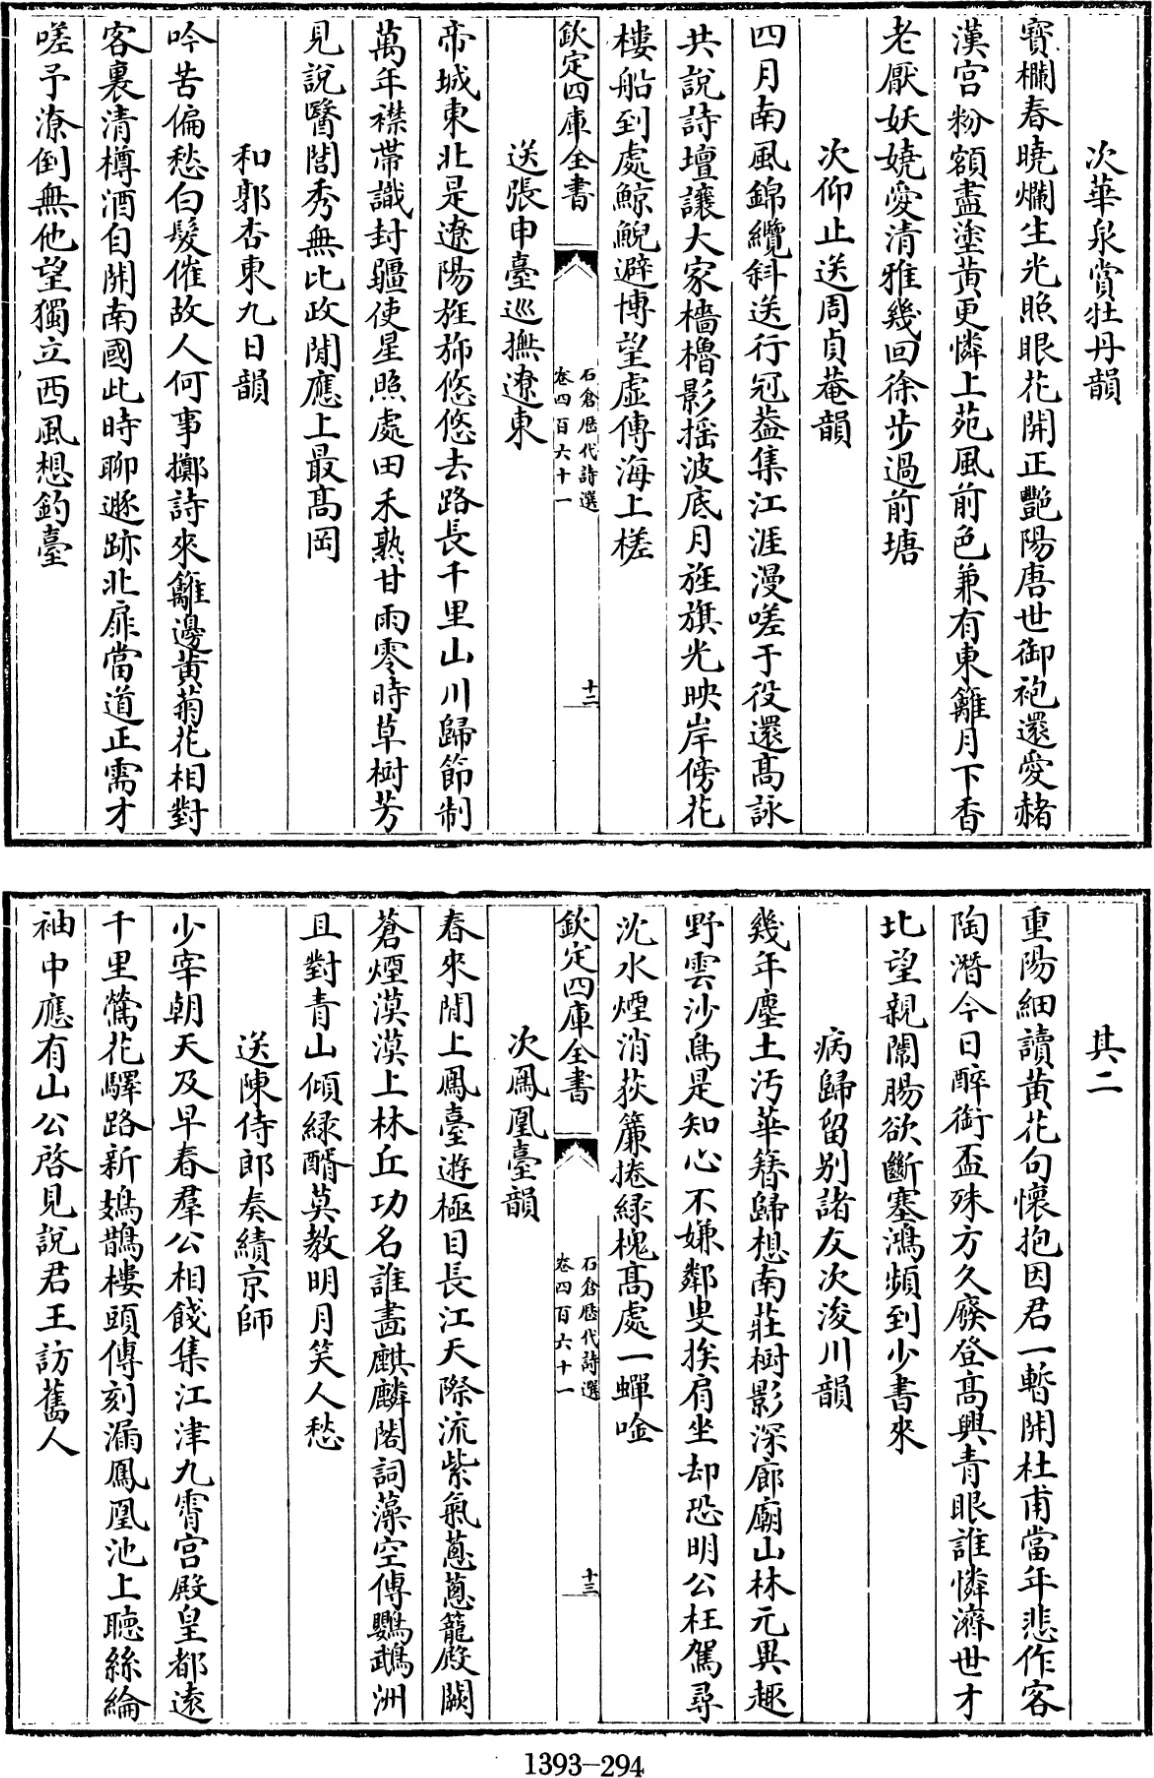 次華泉賞牡丹韻
寳欄春曉爛生光照眼花開正艷陽唐世御袍還愛赭
漢宫粉額盡塗黄更憐上苑風前色兼有東籬月下香
老厭妖嬈愛清雅幾回徐步過前塘
次仰止送周貞菴韻
四月南風錦纜斜送行冠葢集江涯漫嗟于役還髙詠
共說詩壇讓大家檣櫓影揺波底月旌旗光映岸傍花
樓船到處鯨鯢避博望虚傳海上槎
欽定四庫全書
石倉歴代詩選
卷四百六十一
十二
送張申臺巡撫遼東
帝城東北是遼陽旌斾悠悠去路長千里山川歸節制
萬年襟帶識封疆使星照處田禾熟甘雨零時草樹芳
見說醫閭秀無比政閒應上最髙岡
和郭杏東九日韻
吟苦偏愁白髮催故人何事擲詩來籬邊黄菊花相對
客裏清樽酒自開南國此時聊遯跡北扉當道正需才
嗟予潦倒無他望獨立西風想釣臺
其二
重陽細讀黄花句懷抱因君一暫開杜甫當年悲作客
陶潛今日醉銜盃殊方久廢登髙興青眼誰憐濟世才
北望親闈腸欲斷塞鴻頻到少書來
病歸留别諸友次浚川韻
幾年塵土汚華簪歸想南莊樹影深廊廟山林元異趣
野雲沙鳥是知心不嫌鄰叟挨肩坐却恐明公枉駕尋
沈水煙消荻簾捲緑槐髙處一蟬唫
欽定四庫全書
石倉歴代詩選
卷四百六十一
十三
次鳳凰臺韻
春來閒上鳳臺遊極目長江天際流紫氣葱葱籠殿闕
蒼煙漠漠上林丘功名誰畫麒麟閣詞藻空傳鸚鵡洲
且對青山傾緑醑莫教明月笑人愁
送陳侍郎奏績京師
少宰朝天及早春羣公相餞集江津九霄宫殿皇都遠
千里鶯花驛路新鳷鵲樓頭傳刻漏鳳凰池上聴絲綸
袖中應有山公啓見說君王訪舊人
1393—294